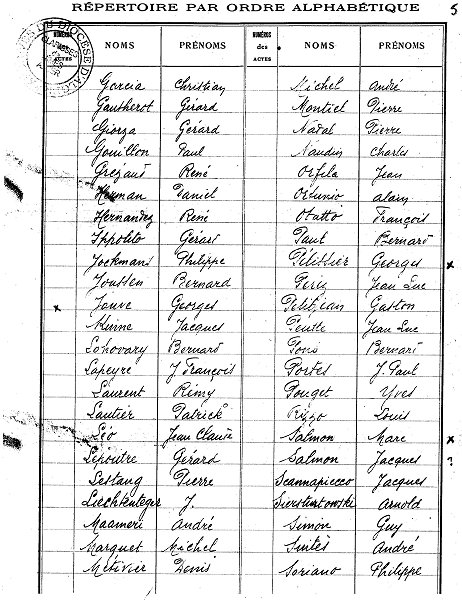 RÉPERTOIRE PAR ORDRE ALPHABÉTIQUE 5
NUMÉROS des ACTES NOMS PRÉNOMS NUMÉROS des ACTES NOMS PRÉNOMS
Garcia Christian Michel André
Gautherot Gérard Montiel Pierre
Giorza Gérard Nadal Pierre
Gouillon Paul Naudin Charles
Grezaud René Orfila Jean
Herman Daniel Ortunio alain
Hernandez René Otatto François
Ippolito Gérard Paul Bernard
Jockmans Philippe Pélissier Georges x
Joussen Bernard Perez Jean Luc
x Jouve Georges Petitjean Gaston
Jacques Jean Luc
Lohovary Bernard Pons Bernard
Lapeyre J François Portes J. Paul
Laurent Rémy Pouget Yves
Lautier Patrick Rizzo Louis
Léo Jean Claude Salmon Marc x
Lepoutre Gérard Salmon Jacques ?
Lestang Pierre Scannapiecco Jacques
Liechtenteger J. Arnold
Maameri André Simon Guy
Marquet Michel André
Métivier Denis Soriano Philippe